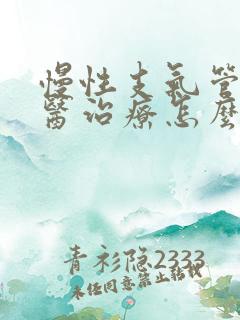 慢性支氣管
醫治療怎麼
青衫隐2333
未经同意禁止转载